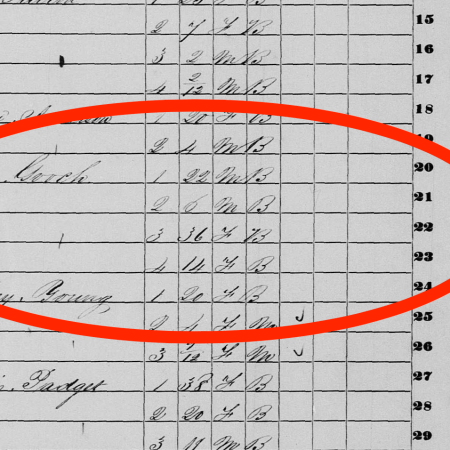 2 7 F B 15
3 2 M B 16
4 2/12 M B 17
1 20 F B 18
2 4 M B 19
Gooch 1 22 M B 20
2 6 M B 21
3 36 F B 22
4 14 F B 23
Young 1 20 F B 24
2 4 F M 25
3 /12 F M 26
Padget 1 38 F B 27
2 20 F B 28
3 11 M B 29